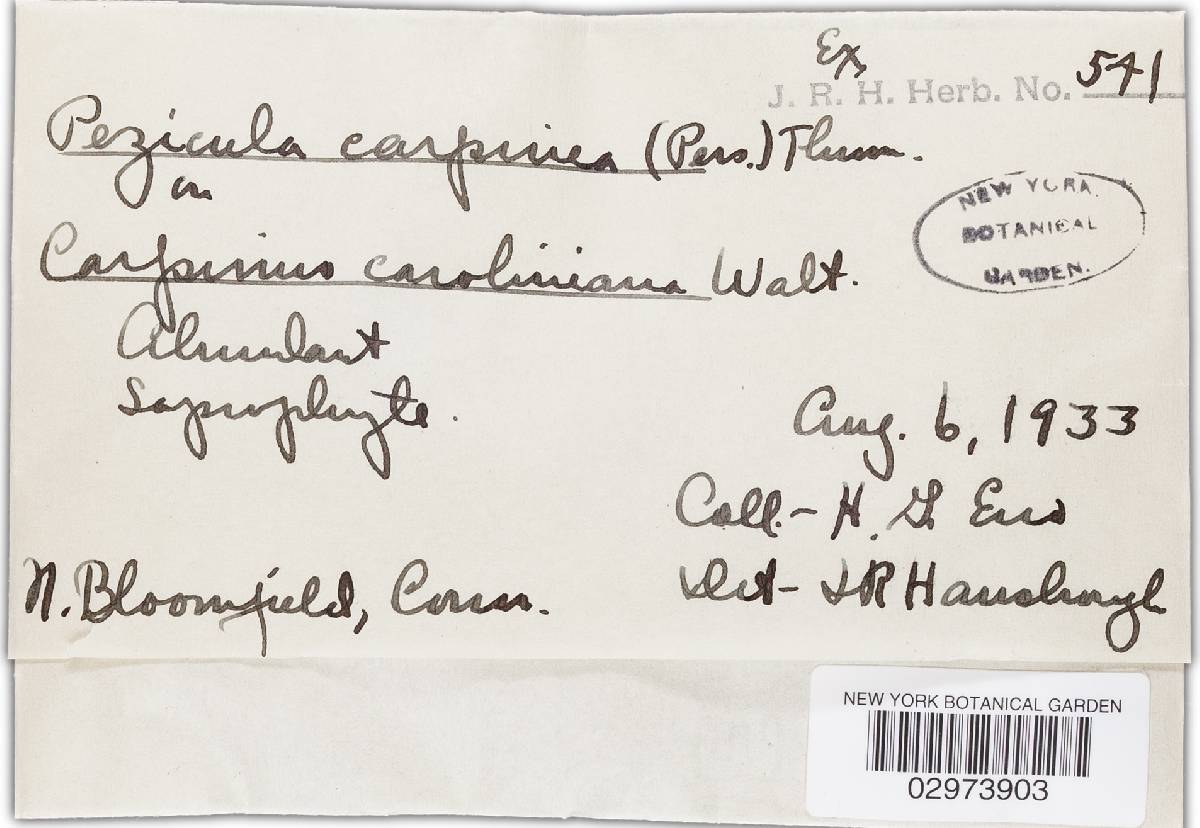 Ex
J. R. H. Herb. No. 541
Pezicula carpinea (Pers.) Thum.
on
NEW YORK
BOTANICAL
GARDEN.
Carpinus caroliniana Walt.
Abundant
Saprophyte.
Aug. 6, 1933
Coll.- H. G. Eno
N. Bloomfield, Conn.
Det- J R Hansbrough
NEW YORK BOTANICAL GARDEN
02973903